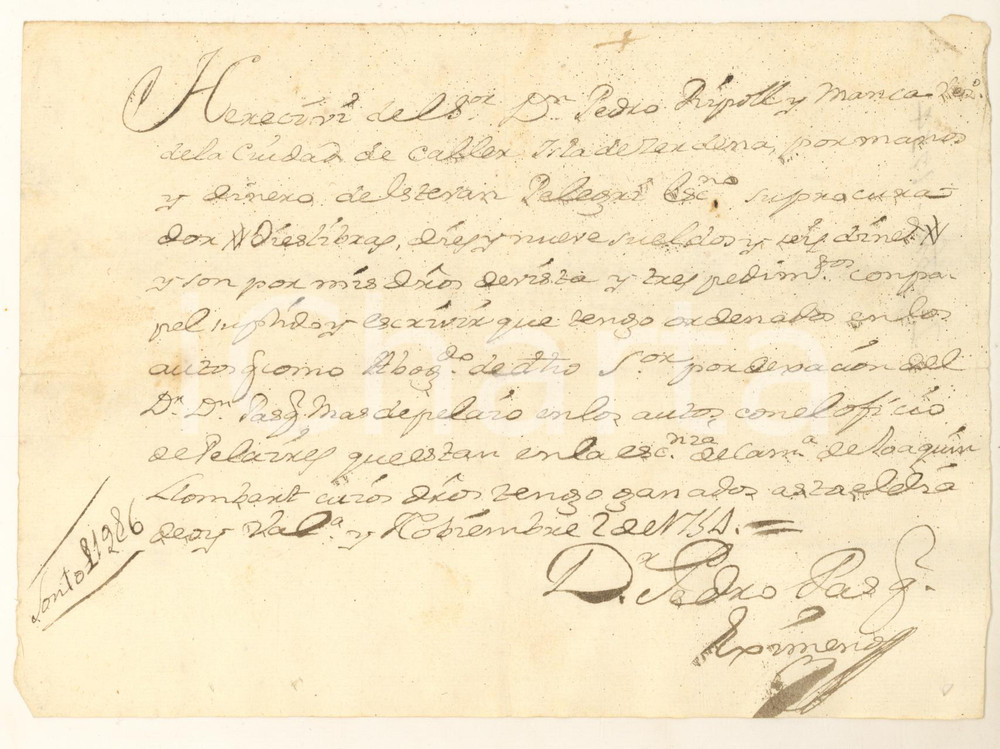 He recivi del S.or D.n Pedro Ripoll y Manca Vez.o
de la Ciudad de Caller Isla de Zerdena, por manos
y dinero de Estevan Pelegri Esc.no su procura=
dor # dies libras, dies y nueve sueldos y seis diner.s #
y son por mis dr̃os de vista y tres pedim.tos con pa-
pel suplido y escrivir que tengo ordenados en los
autos como Abog.do de dho S.or por dexacion del
D.r D.n Pasq.l Mas de pelaio en los autos con el oficio
de Pelaires que estan en la esc.nia de Cam.a de Joaquin
Llombart cuios dr̃os tengo ganados asta el dia
de oy Val.a y Nobiembre 2 de 1754. =
Son 10 £ 19 s 6
D.r Pedro Pasq.l
Ximeno
iCharta